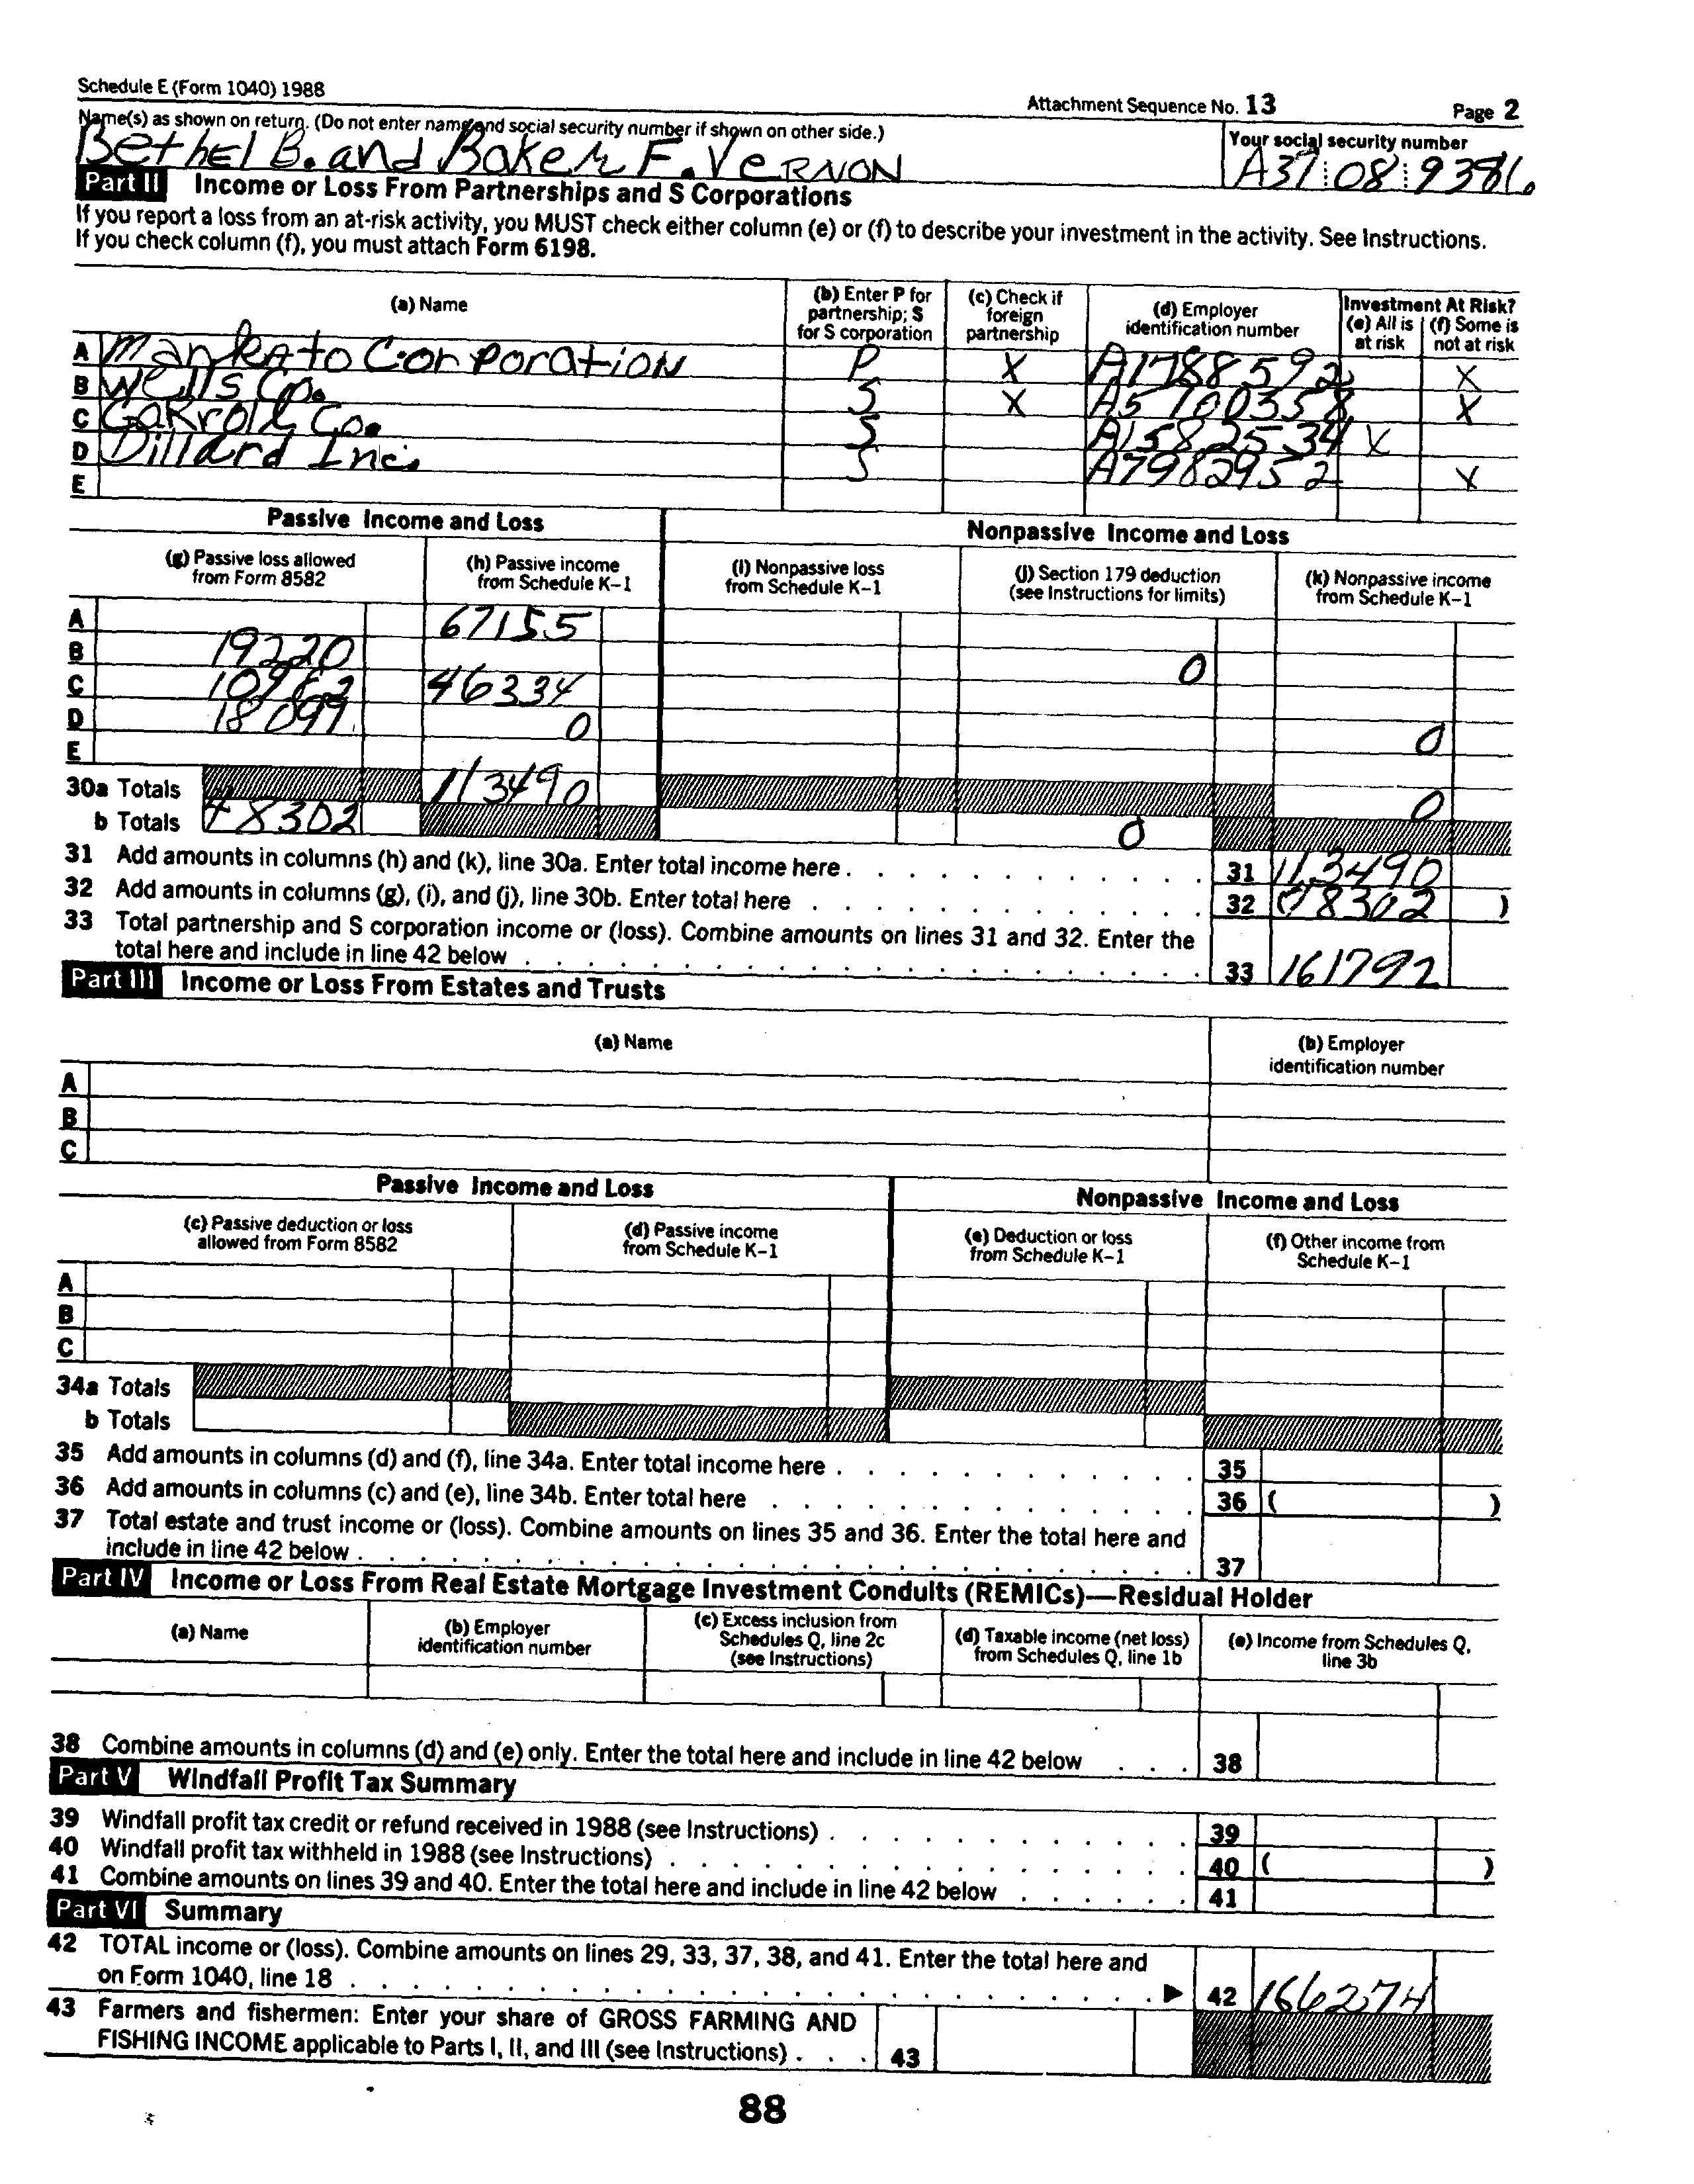 Schedule E (Form 1040) 1988
Attachment Sequence No. 13 Page 2
Name(s) as shown on return. (Do not enter name and social security number if shown on other side.) Your social security number
Bethel B. and Baker F. Vernon A37 08 9386
Part II Income or Loss From Partnerships and S Corporations
If you report a loss from an at-risk activity, you MUST check either column (e) or (f) to describe your investment in the activity. See Instructions.
If you check column (f), you must attach Form 6198.
(a) Name (b) Enter P for partnership; S for S corporation (c) Check if foreign partnership (d) Employer identification number Investment At Risk? (e) All is at risk (f) Some is not at risk
A Mankato Corporation P X A1788592 X
B Wells Co. S X A5700358 X
C Garroll Co. S A1582534 X
D Dillard Inc. S A7982952 X
E
Passive Income and Loss Nonpassive Income and Loss
(g) Passive loss allowed from Form 8582 (h) Passive income from Schedule K-1 (i) Nonpassive loss from Schedule K-1 (j) Section 179 deduction (see Instructions for limits) (k) Nonpassive income from Schedule K-1
A 67155
B 19220 0
C 46334
D 18099 0 0
E
30a Totals 113490 0
b Totals 48302 0
31 Add amounts in columns (h) and (k), line 30a. Enter total income here . 31 113490
32 Add amounts in columns (g), (i), and (j), line 30b. Enter total here . 32 (48302 )
33 Total partnership and S corporation income or (loss). Combine amounts on lines 31 and 32. Enter the
total here and include in line 42 below . 33 161792
Part III Income or Loss From Estates and Trusts
(a) Name (b) Employer identification number
A
B
C
Passive Income and Loss Nonpassive Income and Loss
(c) Passive deduction or loss allowed from Form 8582 (d) Passive income from Schedule K-1 (e) Deduction or loss from Schedule K-1 (f) Other income from Schedule K-1
A
B
C
34a Totals
b Totals
35 Add amounts in columns (d) and (f), line 34a. Enter total income here . 35
36 Add amounts in columns (c) and (e), line 34b. Enter total here . 36 ( )
37 Total estate and trust income or (loss). Combine amounts on lines 35 and 36. Enter the total here and
include in line 42 below . 37
Part IV Income or Loss From Real Estate Mortgage Investment Conduits (REMICs)—Residual Holder
(a) Name (b) Employer identification number (c) Excess inclusion from Schedules Q, line 2c (see Instructions) (d) Taxable income (net loss) from Schedules Q, line 1b (e) Income from Schedules Q, line 3b
38 Combine amounts in columns (d) and (e) only. Enter the total here and include in line 42 below . . . 38
Part V Windfall Profit Tax Summary
39 Windfall profit tax credit or refund received in 1988 (see Instructions) . 39
40 Windfall profit tax withheld in 1988 (see Instructions) . 40 ( )
41 Combine amounts on lines 39 and 40. Enter the total here and include in line 42 below . 41
Part VI Summary
42 TOTAL income or (loss). Combine amounts on lines 29, 33, 37, 38, and 41. Enter the total here and
on Form 1040, line 18 . ▶ 42 166274
43 Farmers and fishermen: Enter your share of GROSS FARMING AND
FISHING INCOME applicable to Parts I, II, and III (see Instructions) . . . 43
88